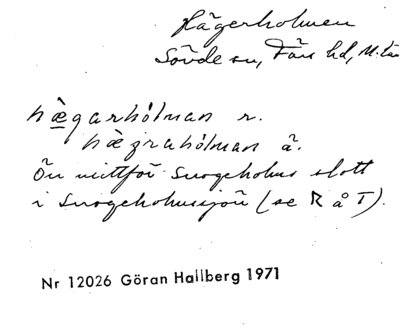 Hägerholmen
Sövde sn, Färs hd, M. län
hæ̀garhólman r.
hæ̀grahólman ä.
Ön mittför Snogeholms slott
i Snogeholmssjön (se R å T).
Nr 12026 Göran Hallberg 1971